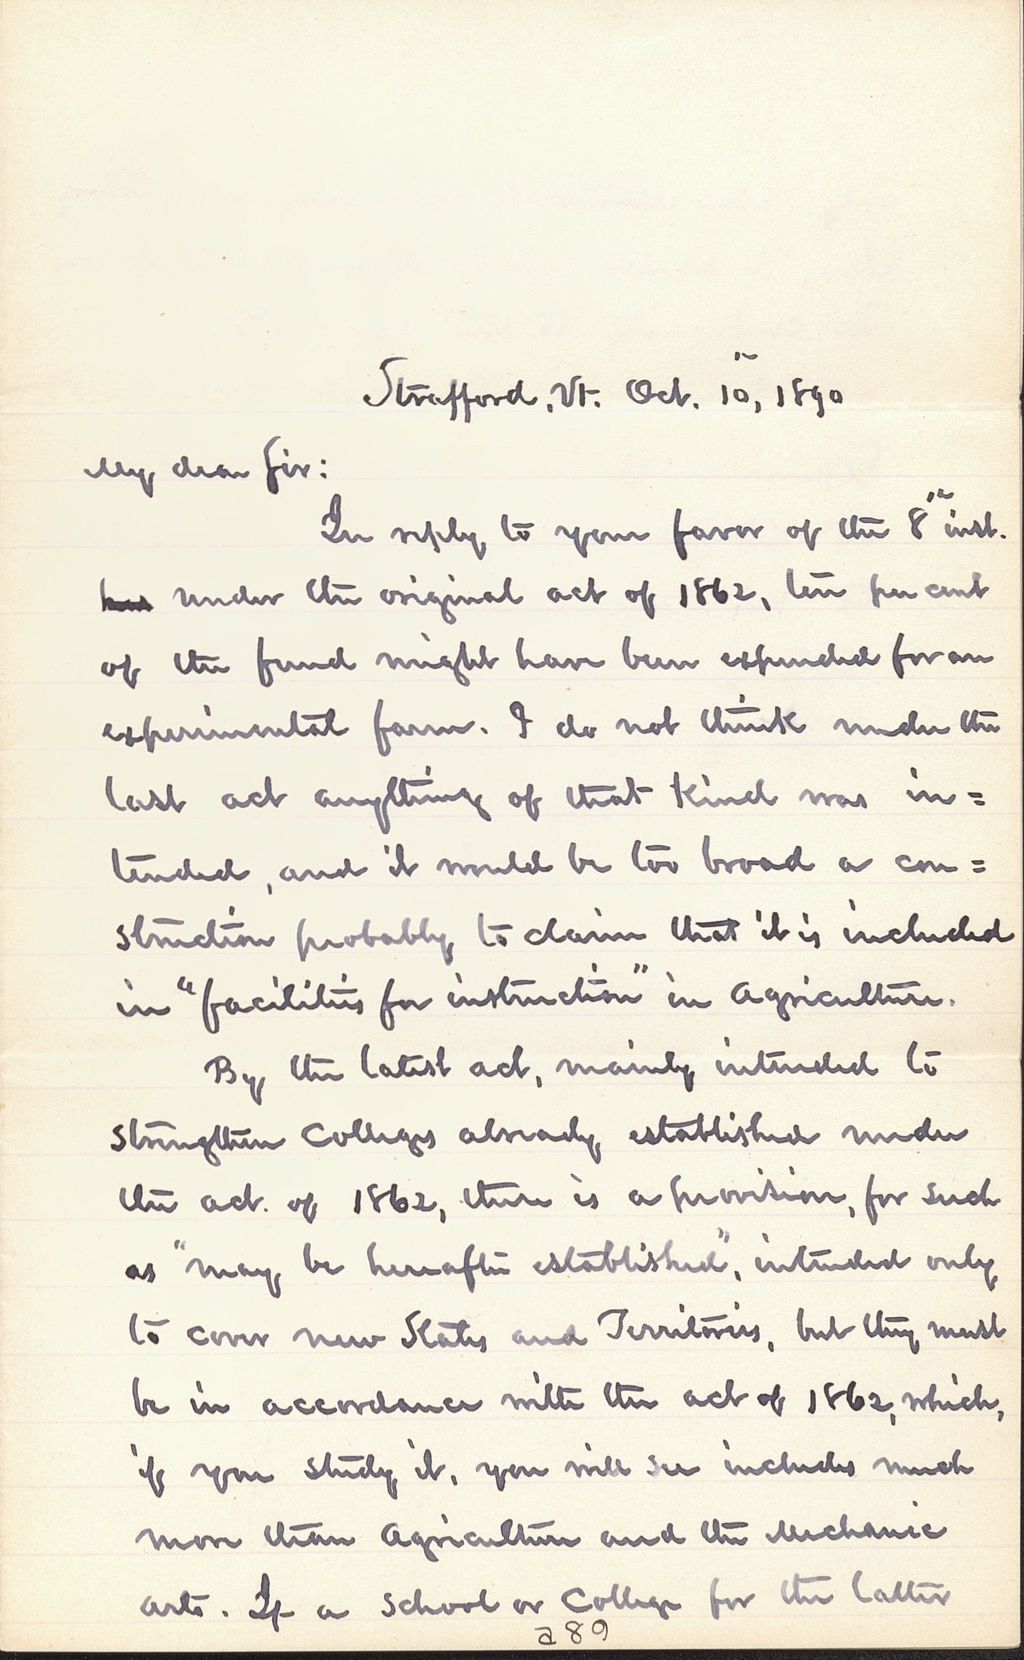 Strafford, Vt. Oct. 10", 1890
My dear Sir:
In reply to your favor of the 8" inst.
under the original act of 1862, ten per cent
of the fund might have been expended for an
experimental farm. I do not think under the
last act anything of that kind was in=
tended, and it would be too broad a con=
struction probably to claim that it is included
in "facilities for instruction" in Agriculture.
By the latest act, mainly intended to
strengthen Colleges already established under
the act. of 1862, there is a provision, for such
as "may be hereafter established", intended only
to cover new States and Territories, but they must
be in accordance with the act of 1862, which,
if you study it, you will see includes much
more than Agriculture and the Mechanic
arts. If a School or College for the latter
a89